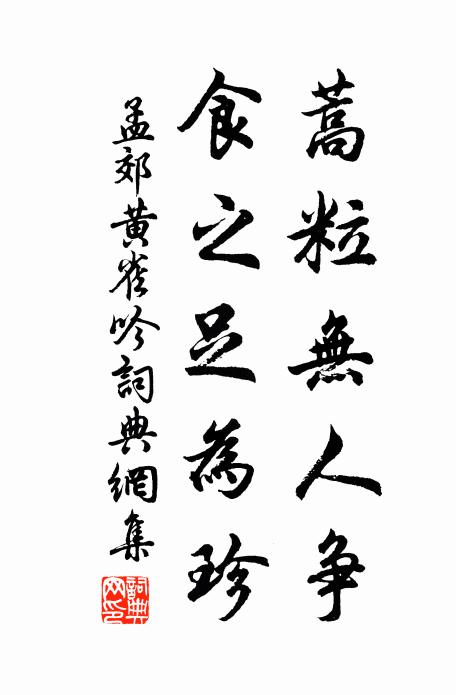 蒿粒無人争
食之足為珍
孟郊黄雀吟詞典網集
詞典網印